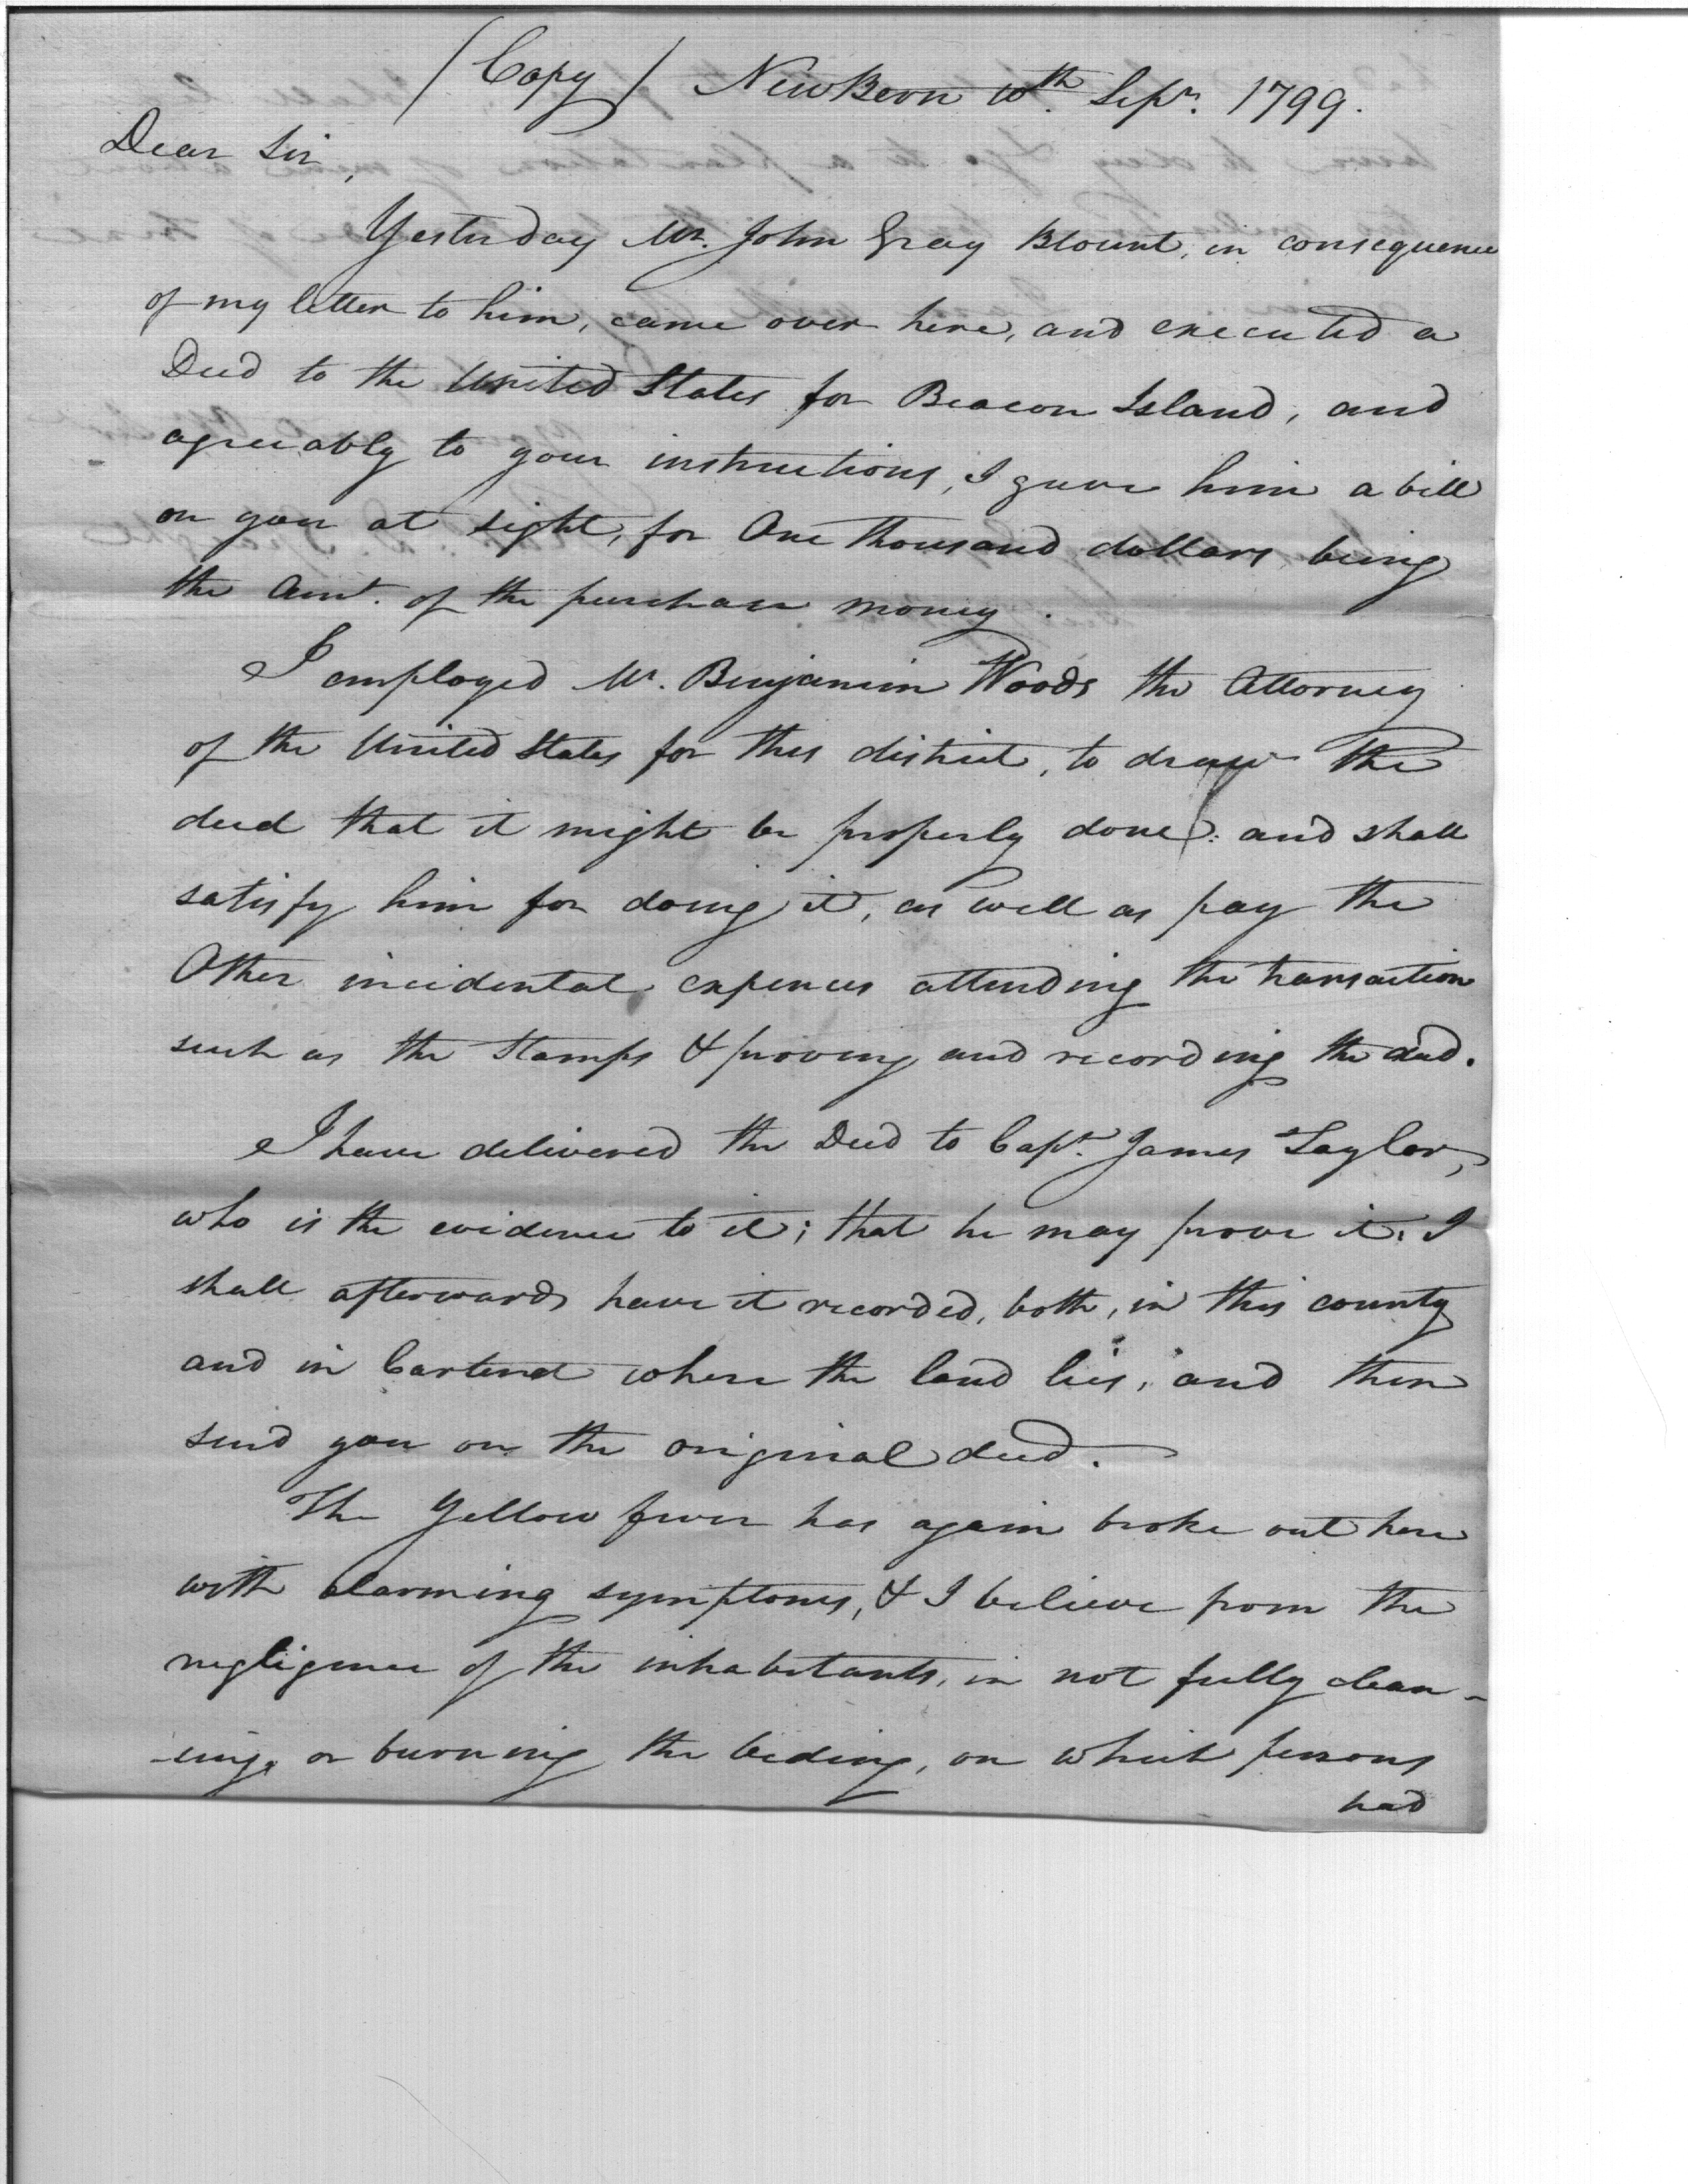 (Copy) NewBern 10th Sepr. 1799.
Dear Sir,
Yesterday Mr. John Gray Blount, in consequence
of my letter to him, came over here, and executed a
Deed to the United States for Beacon Island, and
agreeably to your instructions, I gave him a bill
on you at sight, for One thousand dollars being
the Amt. of the purchase money.
I employed Mr. Benjamin Woods the Attorney
of the United States for this district, to draw the
deed that it might be properly done: and shall
satisfy him for doing it, as well as pay the
Other incidental expences attending the transaction
such as the Stamps & proving and recording the deed.
I have delivered the Deed to Capt. James Taylor,
who is the evidence to it; that he may prove it. I
shall afterwards have it recorded, both, in this county
and in Carteret where the land lies, and then
send you on the original deed.
The Yellow fever has again broke out here
with alarming symptoms, & I believe from the
negligence of the inhabitants, in not fully clean-
-ing, or burning the beding, on which persons
had